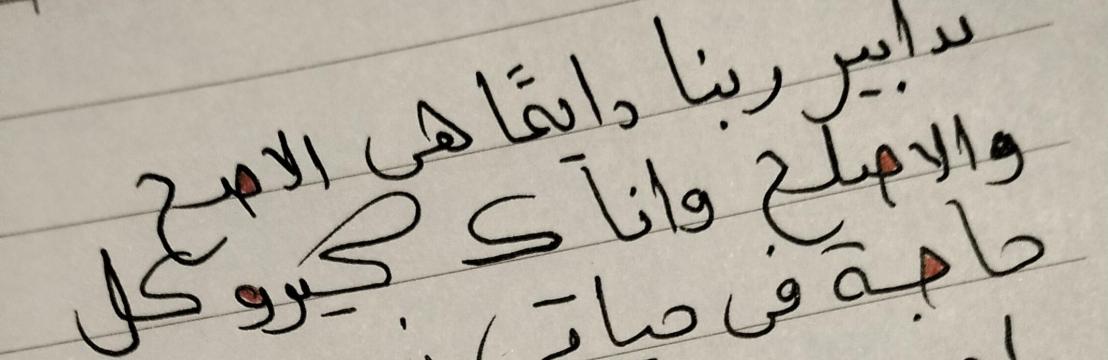 تدابير ربنا دايمًا هى الاصح
والاصلح وانا ك كيرو كل
حاجة فى حياتى